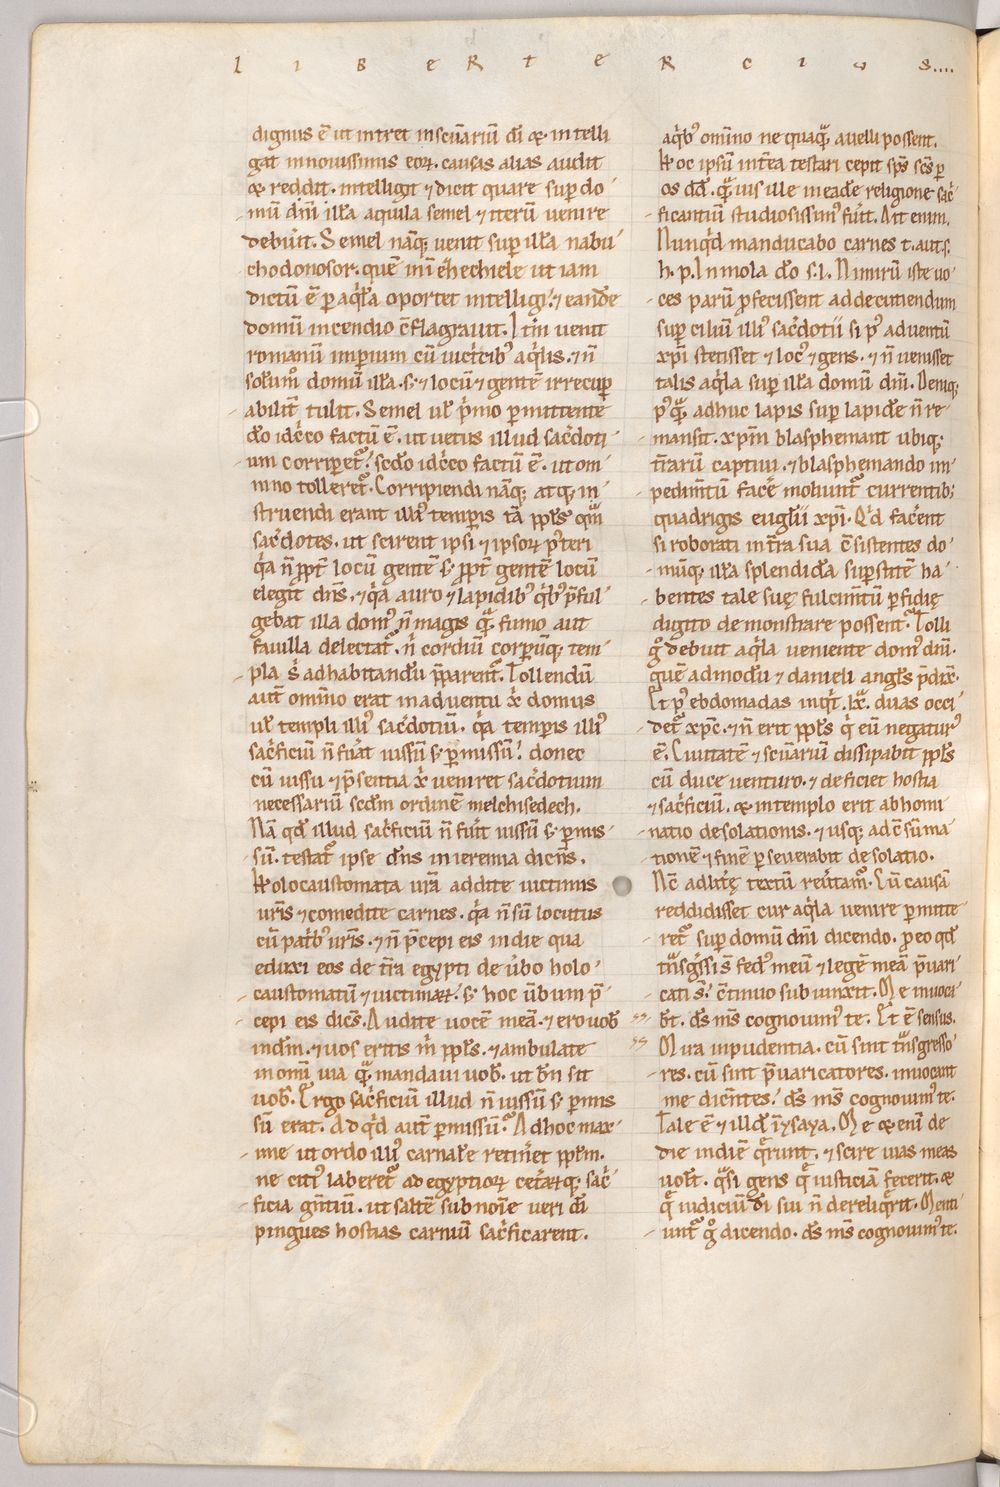 L I B E R T E R C I U S....
dignus ē ut intret in sc̄uariū dī &. intelli
gat in nouissimis eoꝝ. causas alias audit
& reddit. intelligit ⁊ dicit quare sup̱ do´
mū dn̄i illa aquila semel ⁊ iterū uenire
debuit. Semel nāq; uenit sup̱ illā nabu´
chodonosor. quē in ezechiele ut iam
dictū ē p̱ aq̇lā oportet intelligi. ⁊ eandē
domū incendio c̄flagrauit. Itm̄ uenit
romanū imperium cū uictricib᾿ aq̇lis. ⁊ n̄
solum domū illā. s; ⁊ locū ⁊ gentē irrecup̱
abilit̄ tulit. Semel ul᾿ p̓mo p̱mittente
do idc̓co factū ē. ut uetus illud sac̓doti´
um corrip̱et᾿. scdo idc̓co factū ē. ut om´
nino tolleret᾿. Corripiendi nāq; atq; in´
struendi erant illi᾿ temp̱is tā pp̱ls quā
sac̓dotes. ut scirent ipsi ⁊ ipsoꝝ p̓teri
q̓a n̄ pp̱t̄ locū gentē s; pp̱t̄ gentē locū
elegit dn̄s. ⁊ q̓a auro ⁊ lapidib᾿ q̓b᾿ p̄ful´
gebat illa dom᾿ n̄ magis q̄ fumo aut
fauilla delectat᾿. n̓ cordiū corp̱ūq; tem´
pla s᾿ ad habitandū p̄parent᾿. Tollendū
aut̄ omnino erat in aduentu x̄ domus
ul᾿ templi illi᾿ sac̓dotiū. q̓a temp̱is illi᾿
sac̓ficiū n̄ fuāt iussū s; p̱missū. donec
cū iussu ⁊ p̄sentia x̄ ueniret sac̓dotium
necessariū scdm ordinē melchisedech.
Nā qd illud sac̓ficiū n̄ fuit iussū s; p̱mis´
sū. testat᾿ ipse dn̄s in ieremia dicn̄s.
Holocaustomata ur̄a addite uictimis
ur̄is ⁊ comedite carnes. q̓a n̄ sū locutus
cū patrib᾿ ur̄is. ⁊ n̄ p̄cepi eis in die qua
eduxi eos de t̄ra egypti de u̓bo holo´
caustomatū ⁊ uictimaꝝ. s; hoc u̓bum p̄
cepi eis dic̄s. Audite uocē meā. ⁊ ero uob̄
in dm̄. ⁊ uos eritis m̓ pp̱ls. ⁊ ambulate
in omi uia q̄ mandaui uob̄. ut b̄n sit
uob̄. Ergo sac̓ficiū illud n̄ iussū s; p̱mis
sū erat. Ad q̓d aut̄ p̱missū᾿. Ad hoc max´
ime ut ordo illi᾿ carnale retinēt pp̱lm.
ne citi᾿ laberet᾿ ad egyptioꝝ cet̓aꝝq; sac̓
ficia gn̄tiū. ut saltē sub noīe ueri dī
pingues hostias carniū sac̓ficarent.
a q̓b᾿ omīno ne quaq̄ auelli possent.
Hoc ipsū int̄ea testari cepit sp̄s sc̄s p̱
os dd̄. q̄uis ille in eadē religione sac̓
ficantiū studiosissim᾿ fuit. Ait enim.
Nunq̓d manducabo carnes t. aut. s.
h. p. Inmola dō s. l. Nimirū iste uo´
ces parū p̱fecissent ad decutiendum
sup̱ciliū illi᾿ sac̓dotii si p᾿ aduentū
xp̄i stetisset ⁊ loc᾿ ⁊ gens. ⁊ n̄ uenisset
talis aq̇la sup̱ illā domū dn̄i. Deniq;
p᾿q̄ adhuc lapis sup̱ lapide n̄ re´
mansit. xp̄m blasphemant ubiq;
t̄rarū captiui. ⁊ blasphemando im´
pedimtū facē mohunt᾿ currentib;
quadrigis euglii xp̄i. Q̓d facēnt
si roborati in t̄ra sua c̄sistentes do´
mūq; illā splendidā sup̱stitē ha´
bentes tale suę fulcimtū p̱fidię
digito demonstrare possent᾿. Tolli
g̓ debuit aq̇la ueniente dom᾿ dn̄i.
quē admodū ⁊ danieli angls p̄dix̄.
Et p᾿ ebdomadas inq̓t. lx̄. duas occi´
det᾿ xp̄c. ⁊ n̄ erit pp̱ls q̓ eū negatur᾿
ē. Ciuitatē ⁊ sc̄uariū dissipabit pp̱ls
cū duce uenturo. ⁊ deficiet hostia
⁊ sac̓ficiū. & in templo erit abhomi´
natio desolationis. ⁊ usq; ad c̄sūma´
tionē ⁊ finē p̱seuerabit desolatio.
Nc̄ ad lit̄ę textū reu̓tam᾿. Cū causā
reddidisset cur aq̇la uenire p̱mitte´
ret᾿ sup̱ domū dn̄i dicendo. p̱ eo qd̄
t̄nsg̓ssi s̄ fed᾿ meū ⁊ legē meā p̄uari´
cati s̄. c̄tinuo subiunxit. Me inuoca´
bt̄. ds̄ ms̄ cognouim᾿ te. Et ē sensus.
Mira inpudentia. cū sint t̄nsgresso´
res. cū sint p̄uaricatores. inuocant
me dicēntes. ds̄ ms̄ cognouim᾿ te.
Tale ē ⁊ illd̄ ī ysaya. Me & enī de
die in diē q̄runt. ⁊ scire uias meas
uolt̄. q̄si gens q̄ iusticiā fecerit. &
q̄ iudiciū dī sui n̄ dereliq̄rit. Menti´
unt᾿ g̓ dicendo. ds̄ ms̄ cognouim᾿ te.